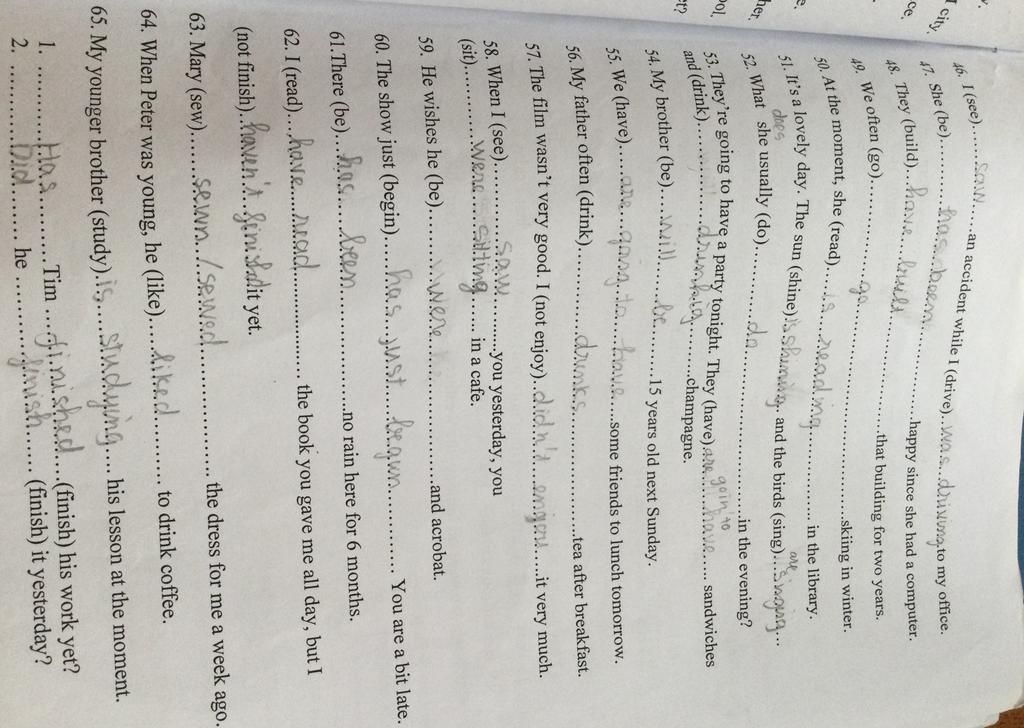 city.
ce,
e.
her,
ool,
er?
46. I (see).....saw.....an accident while I (drive) was driving to my office.
47. She (be)..........has been..........happy since she had a computer.
48. They (build)...have...built..........that building for two years.
49. We often (go)..........go..........skiing in winter.
50. At the moment, she (read)....is...reading.......... in the library.
51. It's a lovely day. The sun (shine) is shining, and the birds (sing)...are singing...
52. What does she usually (do)..........do..........in the evening?
53. They're going to have a party tonight. They (have) are goin' to have..... sandwiches
and (drink)..........drinking..........champagne.
54. My brother (be)....will.....be..........15 years old next Sunday.
55. We (have)....are...going to...have....some friends to lunch tomorrow.
56. My father often (drink)..........drinks..........tea after breakfast.
57. The film wasn't very good. I (not enjoy).didn't...enjou.....it very much.
58. When I (see)..........saw..........you yesterday, you
(sit)..........were sitting..... in a cafe.
59. He wishes he (be)..........were..........and acrobat.
60. The show just (begin)....has...just...begun.......... You are a bit late.
61.There (be)....has.....been..........no rain here for 6 months.
62. I (read)....have.....read.......... the book you gave me all day, but I
(not finish)..haven't finishd it yet.
63. Mary (sew)..........sewn./sewed.......... the dress for me a week ago.
64. When Peter was young, he (like)....liked.......... to drink coffee.
65. My younger brother (study).is....studying.... his lesson at the moment.
1. ..........Has..........Tim ....finished....(finish) his work yet?
2. ..........Did..... he ..........finish..... (finish) it yesterday?